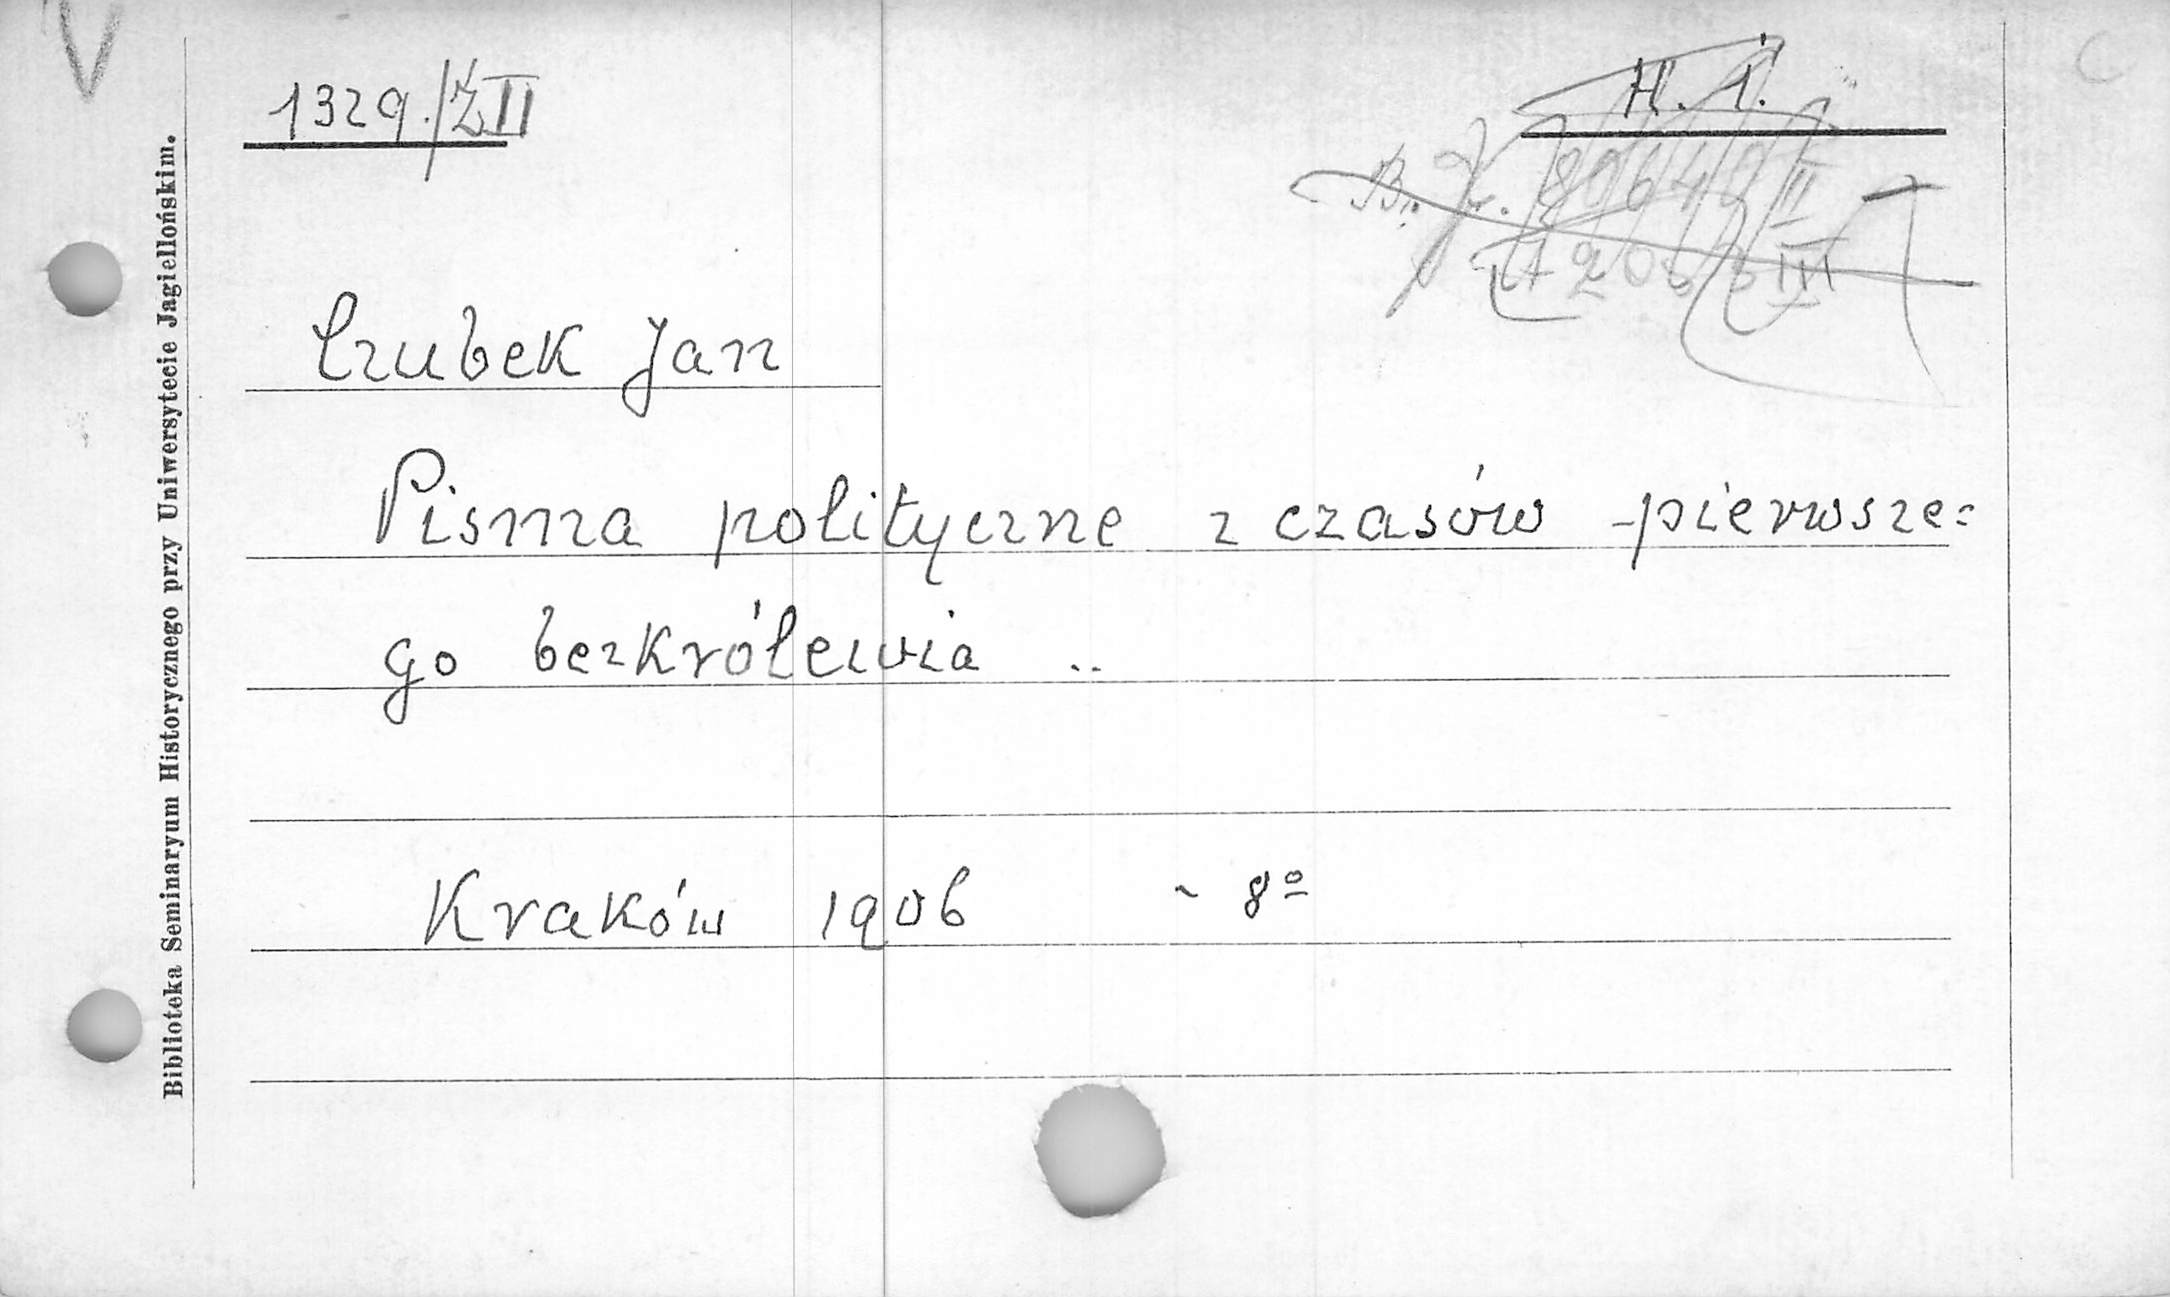 V
1329./ŻII
H. 1.
C
B. J. 80640 II
Czubek Jan
Pisma polityczne z czasów pierwsze=
go bezkrólewia ..
Kraków 1906 - 8º
Biblioteka Seminaryum Historycznego przy Uniwersytecie Jagiellońskim.